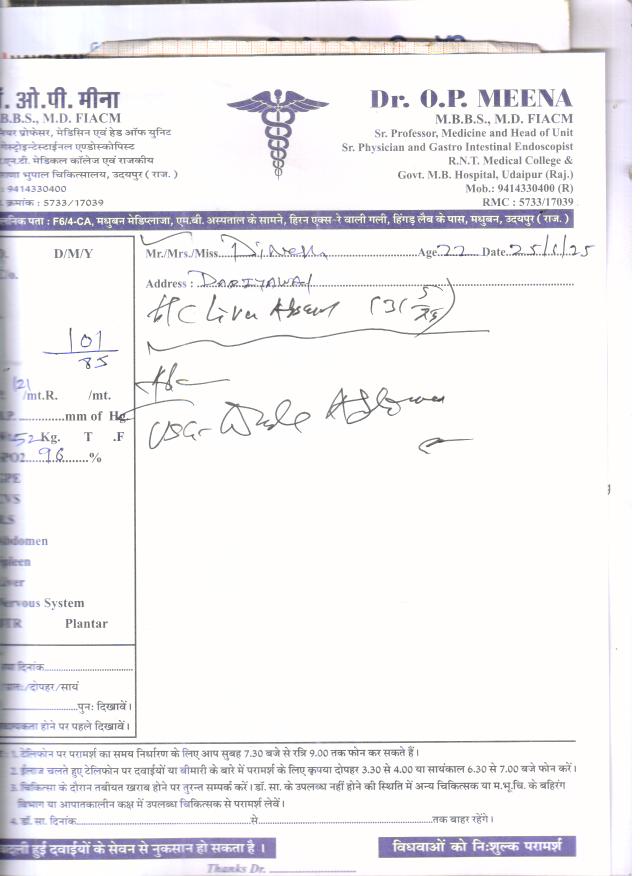 . ओ.पी. मीना
.B.B.S., M.D. FIACM
प्रोफेसर, मेडिसिन एवं हेड ऑफ युनिट
गेस्ट्रोइन्टेस्टाईनल एण्डोस्कोपिस्ट
.एन.टी. मेडिकल कॉलेज एवं राजकीय
भुपाल चिकित्सालय, उदयपुर ( राज. )
: 9414330400
. क्रमांक : 5733/17039
Dr. O.P. MEENA
M.B.B.S., M.D. FIACM
Sr. Professor, Medicine and Head of Unit
Sr. Physician and Gastro Intestinal Endoscopist
R.N.T. Medical College &
Govt. M.B. Hospital, Udaipur (Raj.)
Mob.: 9414330400 (R)
RMC : 5733/17039
पता : F6/4-CA, मधुबन मेडिप्लाजा, एम.बी. अस्पताल के सामने, हिरन एक्स-रे वाली गली, हिंगड़ लैब के पास, मधुबन, उदयपुर ( राज. )
D/M/Y
Mr./Mrs./Miss. Dinesh Age 22 Date 25/1/25
Address : DARIYAWAD
H/C Liver Abscess
101
85
121
/mt.R. /mt.
mm of Hg
52 Kg. T .F
96 %
Abdomen
Spleen
Liver
Nervous System
Plantar
USG Whole Abdomen
दिनांक
/दोपहर/सायं
पुनः दिखावें।
होने पर पहले दिखावें।
1. टेलिफोन पर परामर्श का समय निर्धारण के लिए आप सुबह 7.30 बजे से रात्रि 9.00 तक फोन कर सकते हैं।
2. ईलाज चलते हुए टेलिफोन पर दवाईयों या बीमारी के बारे में परामर्श के लिए कृपया दोपहर 3.30 से 4.00 या सायंकाल 6.30 से 7.00 बजे फोन करें।
3. चिकित्सा के दौरान तबीयत खराब होने पर तुरन्त सम्पर्क करें। डॉ. सा. के उपलब्ध नहीं होने की स्थिति में अन्य चिकित्सक या म.भू.चि. के बहिरंग
विभाग या आपातकालीन कक्ष में उपलब्ध चिकित्सक से परामर्श लेवें।
4. डॉ. सा. दिनांक से तक बाहर रहेंगे।
हुई दवाईयों के सेवन से नुकसान हो सकता है।
विधवाओं को निःशुल्क परामर्श
Thanks Dr.